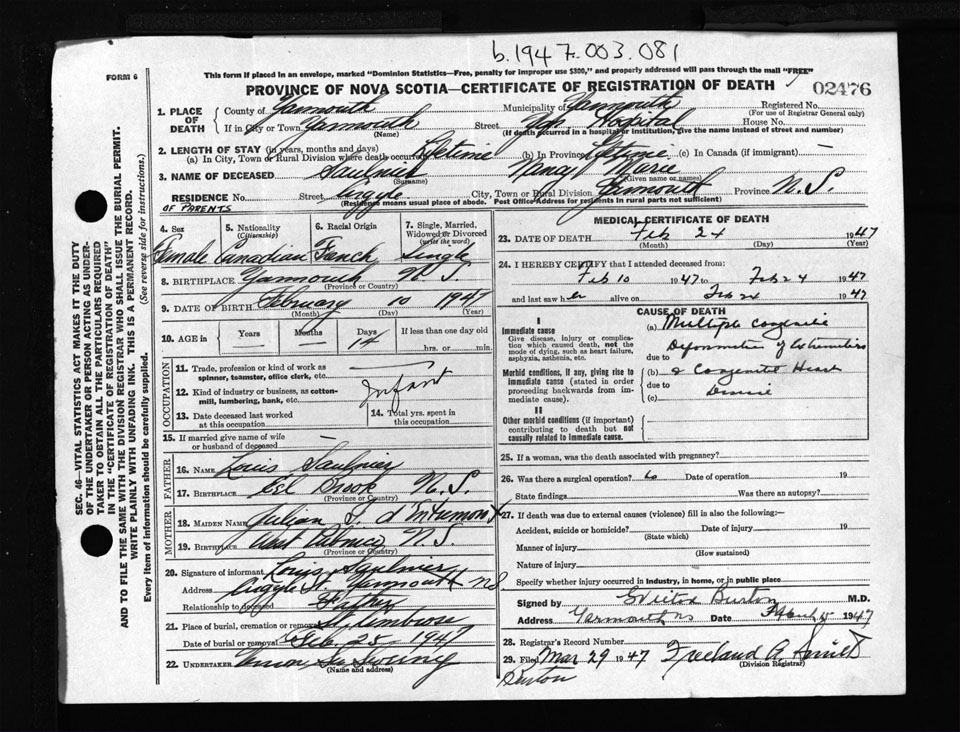 b.1947.003.081
FORM 6
This form if placed in an envelope, marked "Dominion Statistics—Free, penalty for improper use $300," and properly addressed will pass through the mail "FREE"
PROVINCE OF NOVA SCOTIA—CERTIFICATE OF REGISTRATION OF DEATH
02476
1. PLACE OF DEATH
County of Yarmouth Municipality of Yarmouth Registered No.
(For use of Registrar General only)
If in City or Town Yarmouth Street Hospital House No.
(Name) (If death occurred in a hospital or institution, give the name instead of street and number)
2. LENGTH OF STAY (in years, months and days)
(a) In City, Town or Rural Division where death occurred Lifetime (b) In Province Lifetime (c) In Canada (if immigrant) —
3. NAME OF DECEASED Saulnier Nancy Marie
(Surname) (Given name or names)
RESIDENCE No. Street Argyle City, Town or Rural Division Yarmouth Province N.S.
OF PARENTS
(Residence means usual place of abode. Post Office Address for residents in rural parts not sufficient)
4. Sex 5. Nationality (Citizenship) 6. Racial Origin 7. Single, Married, Widowed or Divorced (write the word)
Female Canadian French Single
8. BIRTHPLACE Yarmouth N.S.
(Province or Country)
9. DATE OF BIRTH February 10 1947
(Month) (Day) (Year)
10. AGE in Years Months Days If less than one day old
— — 14 hrs. or min.
OCCUPATION
11. Trade, profession or kind of work as spinner, teamster, office clerk, etc. —
12. Kind of industry or business, as cotton-mill, lumbering, bank, etc. Infant
13. Date deceased last worked at this occupation
14. Total yrs. spent in this occupation
15. If married give name of wife or husband of deceased —
FATHER
16. NAME Louis Saulnier
17. BIRTHPLACE Eel Brook N.S.
(Province or Country)
MOTHER
18. MAIDEN NAME Julian F. d'Entremont
19. BIRTHPLACE West Pubnico N.S.
(Province or Country)
20. Signature of informant Louis Saulnier
Address Argyle St. Yarmouth NS
Relationship to deceased Father
21. Place of burial, cremation or removal St Ambrose
Date of burial or removal Feb 25 - 1947
22. UNDERTAKER Sweeny
(Name and address)
MEDICAL CERTIFICATE OF DEATH
23. DATE OF DEATH Feb 24 1947
(Month) (Day) (Year)
24. I HEREBY CERTIFY that I attended deceased from:
Feb 10 1947 to Feb 24 1947
and last saw her alive on Feb 24 1947
CAUSE OF DEATH
I
Immediate cause
Give disease, injury or complication which caused death, not the mode of dying, such as heart failure, asphyxia, asthenia, etc.
(a) Multiple Congenital
Deformities of Extremities
due to
Morbid conditions, if any, giving rise to immediate cause (stated in order proceeding backwards from immediate cause).
(b) & Congenital Heart
due to
(c) Disease
II
Other morbid conditions (if important) contributing to death but not causally related to immediate cause.
25. If a woman, was the death associated with pregnancy?
26. Was there a surgical operation? Date of operation 19
State findings Was there an autopsy?
27. If death was due to external causes (violence) fill in also the following:—
Accident, suicide or homicide? Date of injury 19
(State which)
Manner of injury
(How sustained)
Nature of injury
Specify whether injury occurred in industry, in home, or in public place
Signed by Burton M.D.
Address Yarmouth NS Date 1947
28. Registrar's Record Number
29. Filed Mar 29 1947 Freeland A.
(Division Registrar)
Burton
SEC. 46—VITAL STATISTICS ACT MAKES IT THE DUTY
OF THE UNDERTAKER OR PERSON ACTING AS UNDER-
TAKER TO OBTAIN ALL THE PARTICULARS REQUIRED
IN THE "CERTIFICATE OF REGISTRATION OF DEATH"
AND TO FILE THE SAME WITH THE DIVISION REGISTRAR WHO SHALL ISSUE THE BURIAL PERMIT.
WRITE PLAINLY WITH UNFADING INK. THIS IS A PERMANENT RECORD.
Every item of information should be carefully supplied. (See reverse side for instructions.)